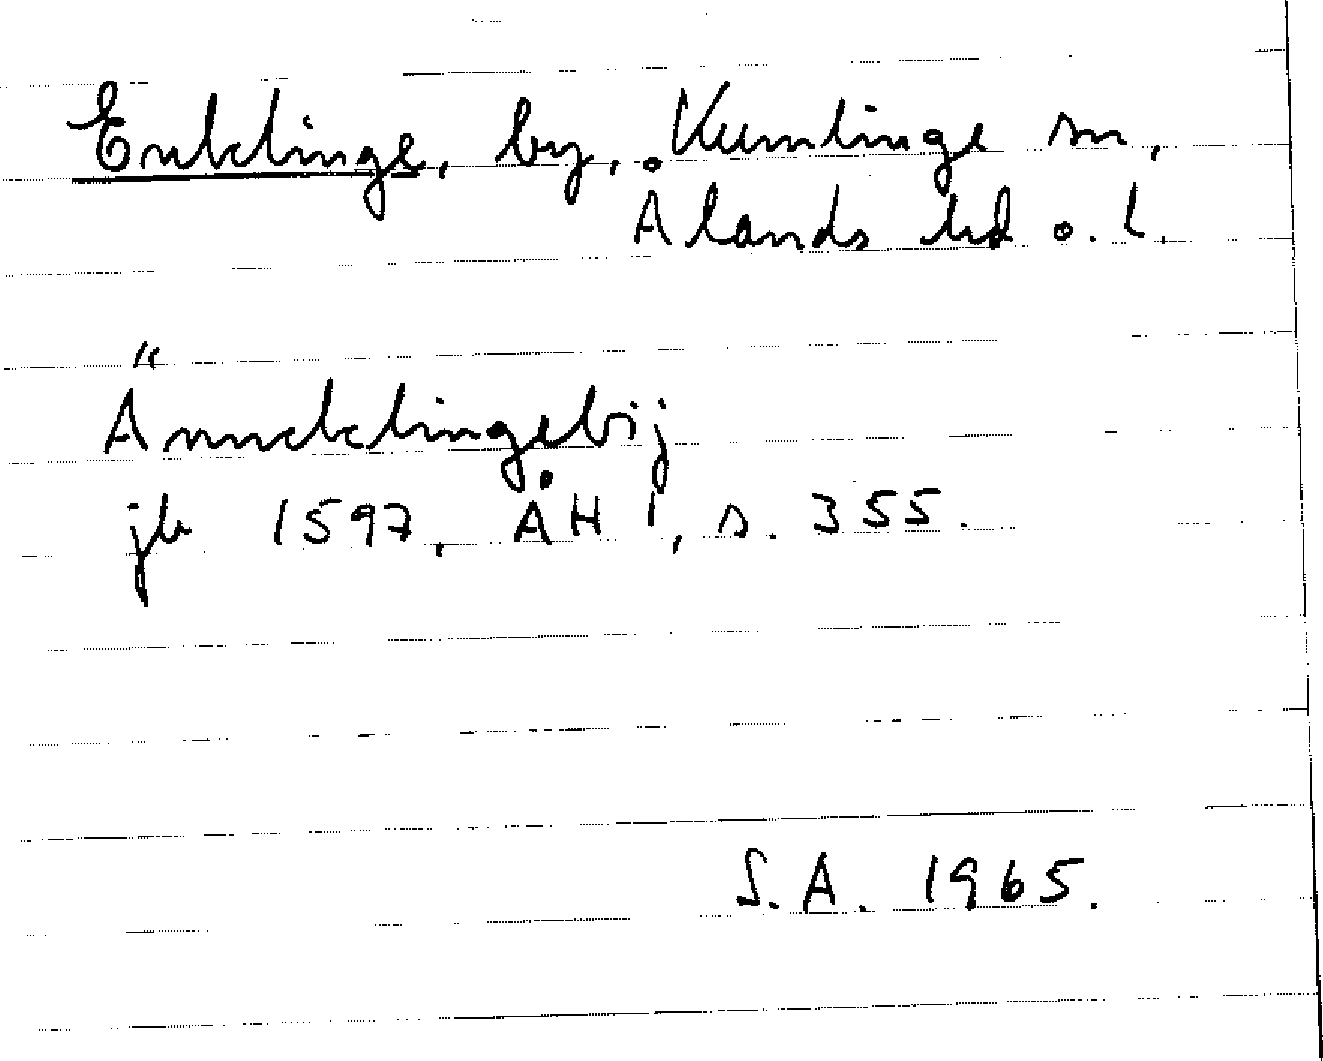 Enklinge, by, Kumlinge sn,
Ålands hd o. l.
Änncklingebij
jb 1597, ÅH 1, s. 355.
S.A. 1965.